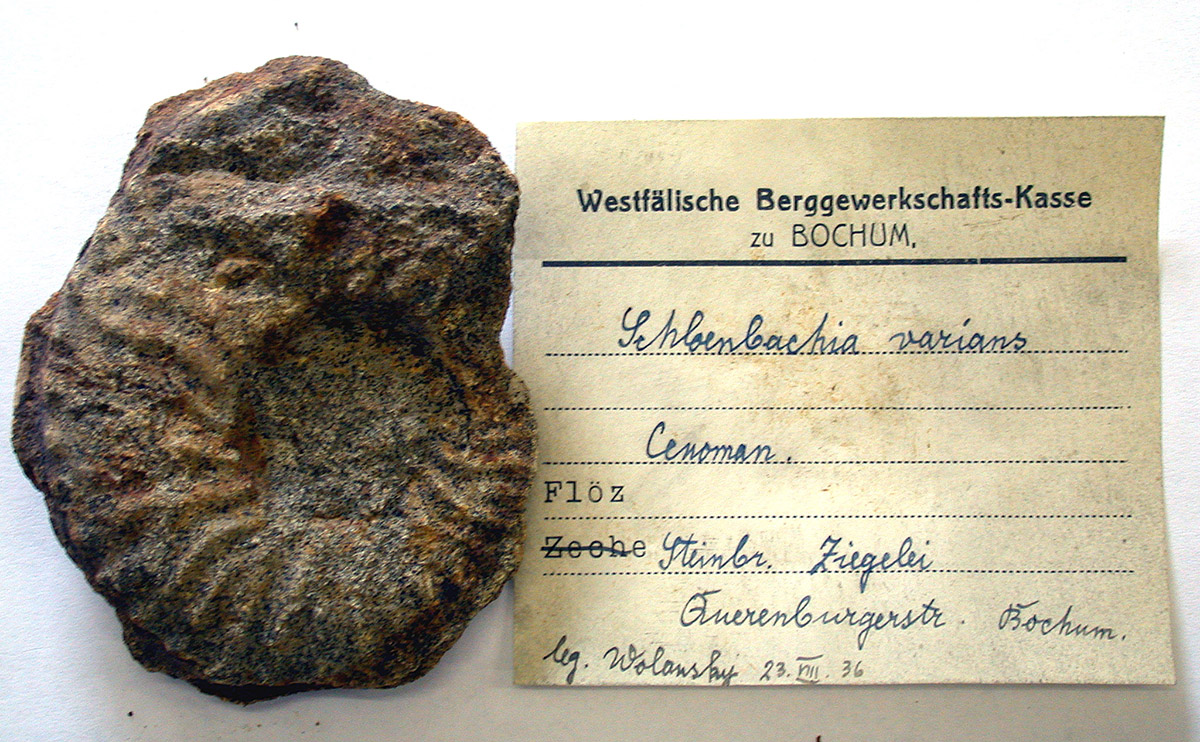 Westfälische Berggewerkschafts-Kasse
zu BOCHUM.
Schloenbachia varians
Cenoman.
Flöz
Zeche Steinbr. Ziegelei
Querenburgerstr. Bochum.
leg. Wolansky 23.VIII.36